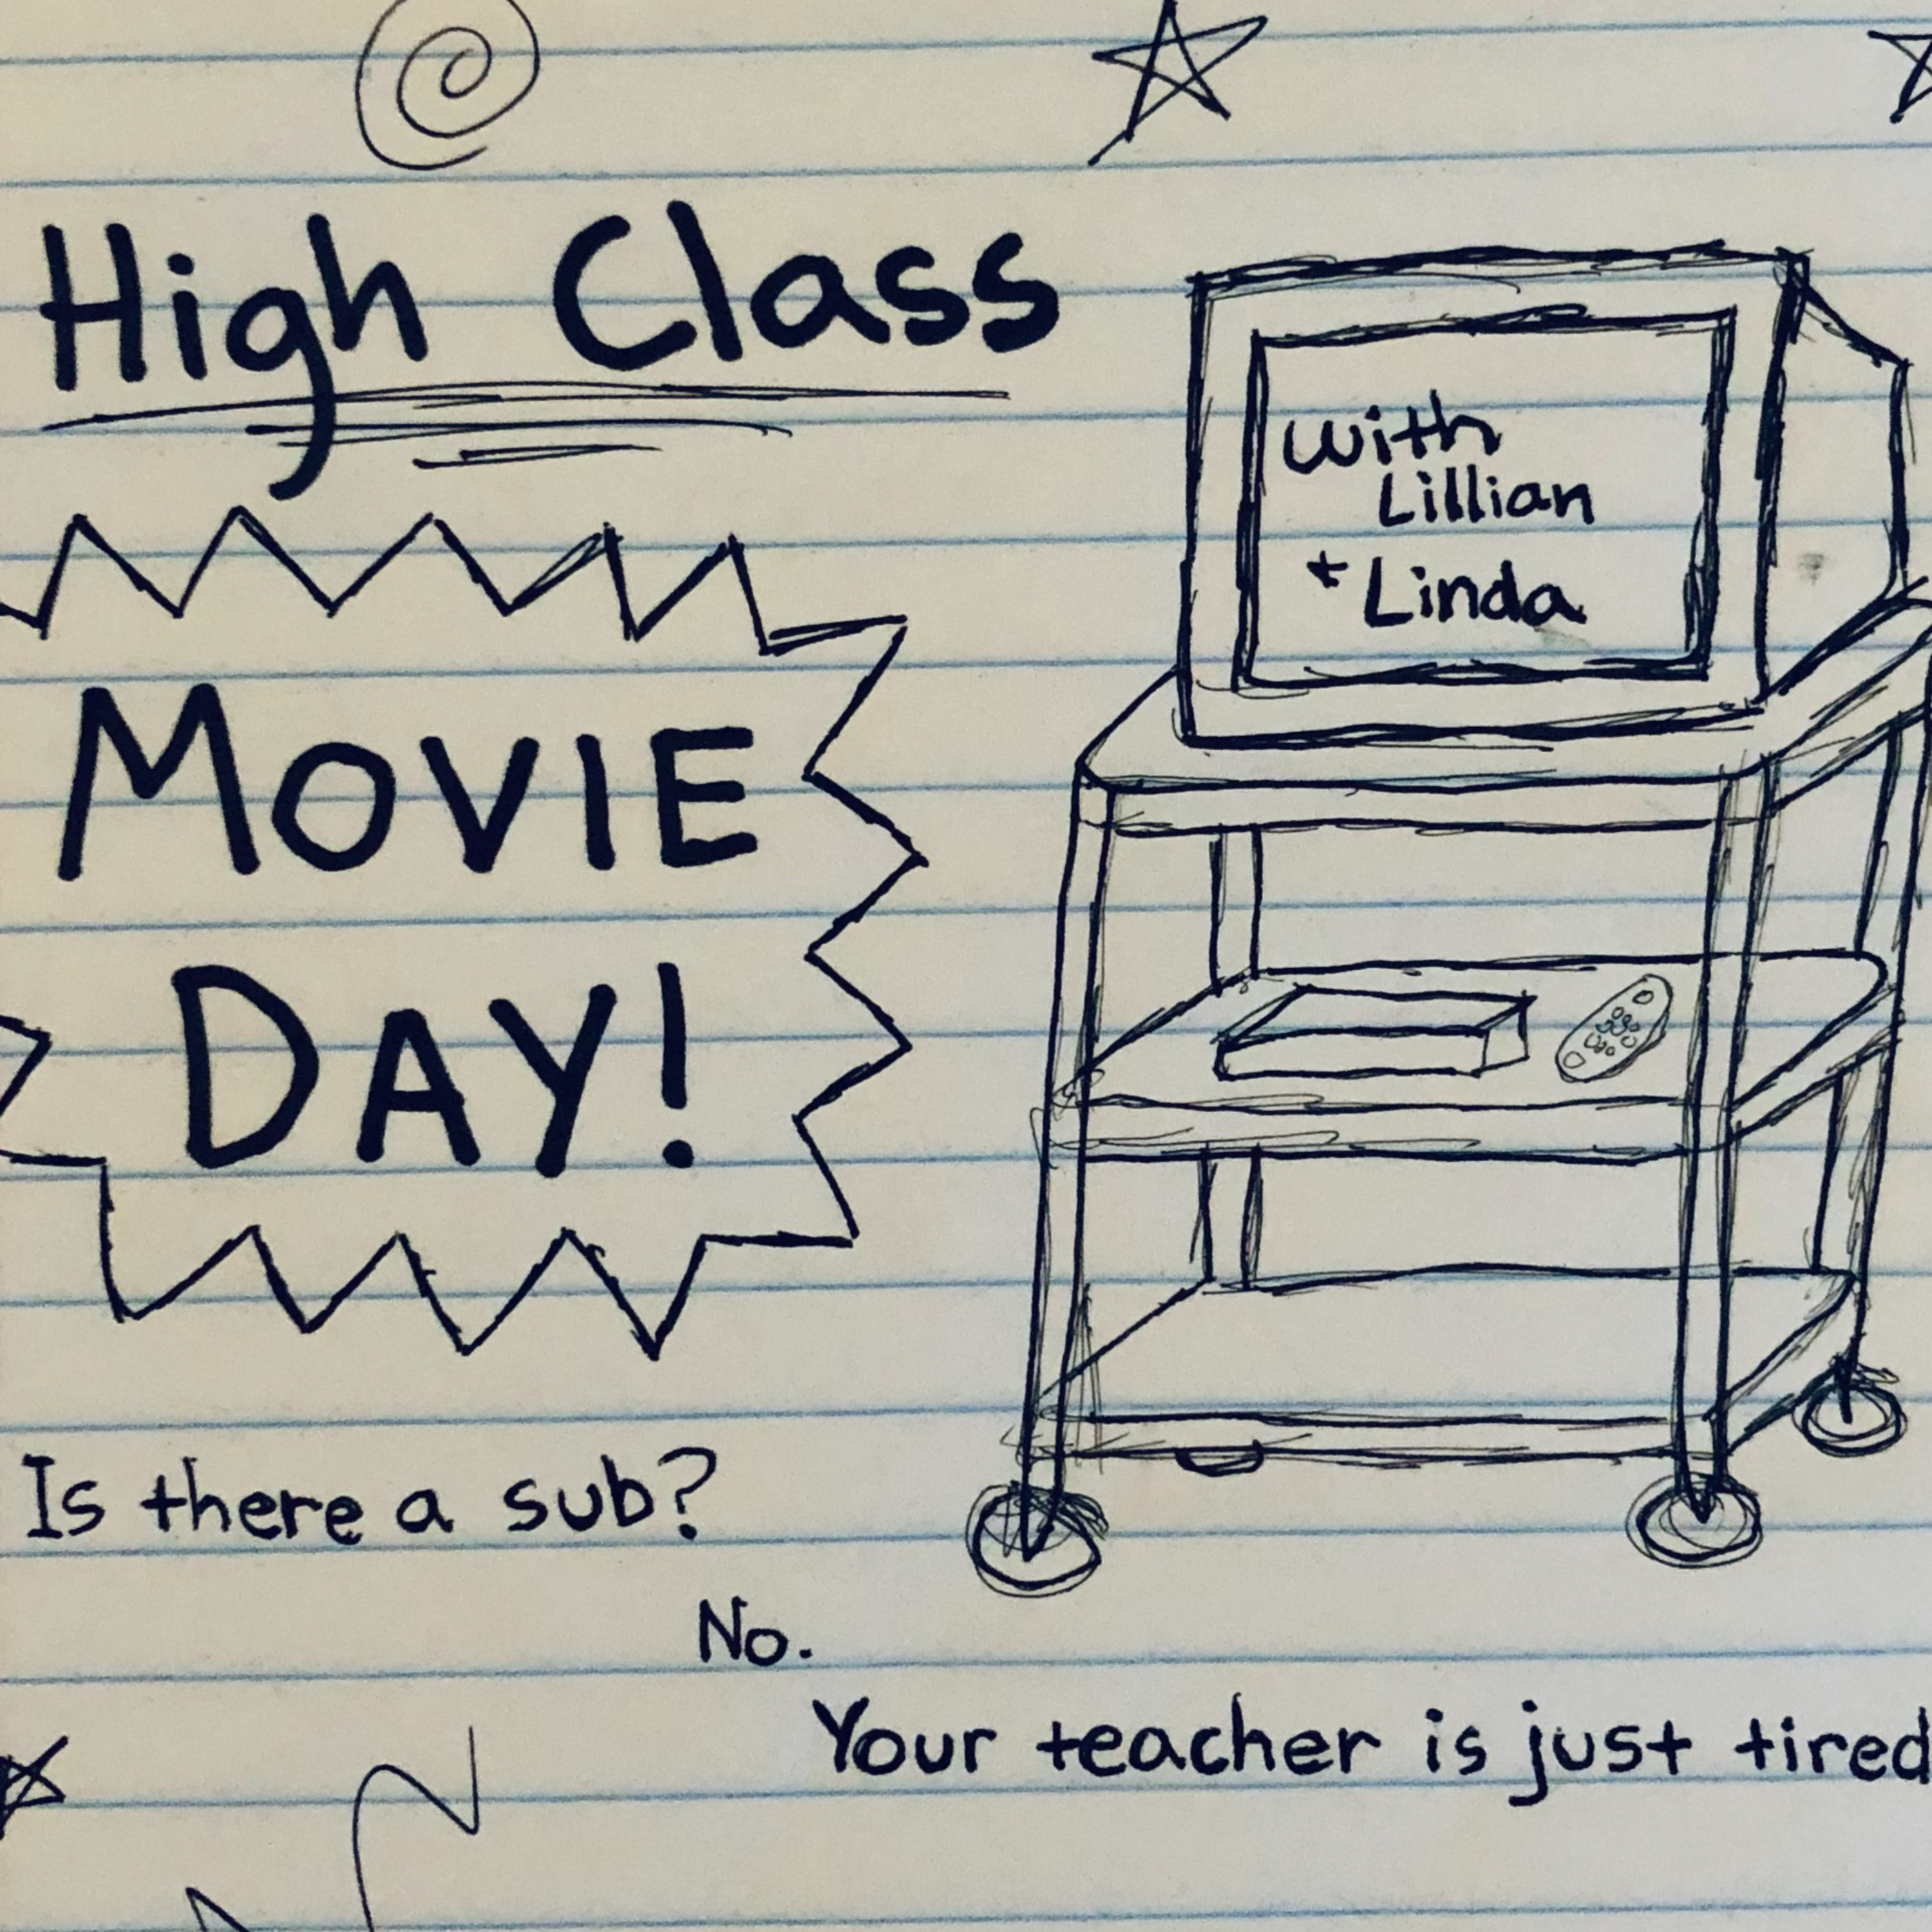 High Class
MOVIE
DAY!
with
Lillian
+ Linda
Is there a sub?
No.
Your teacher is just tired